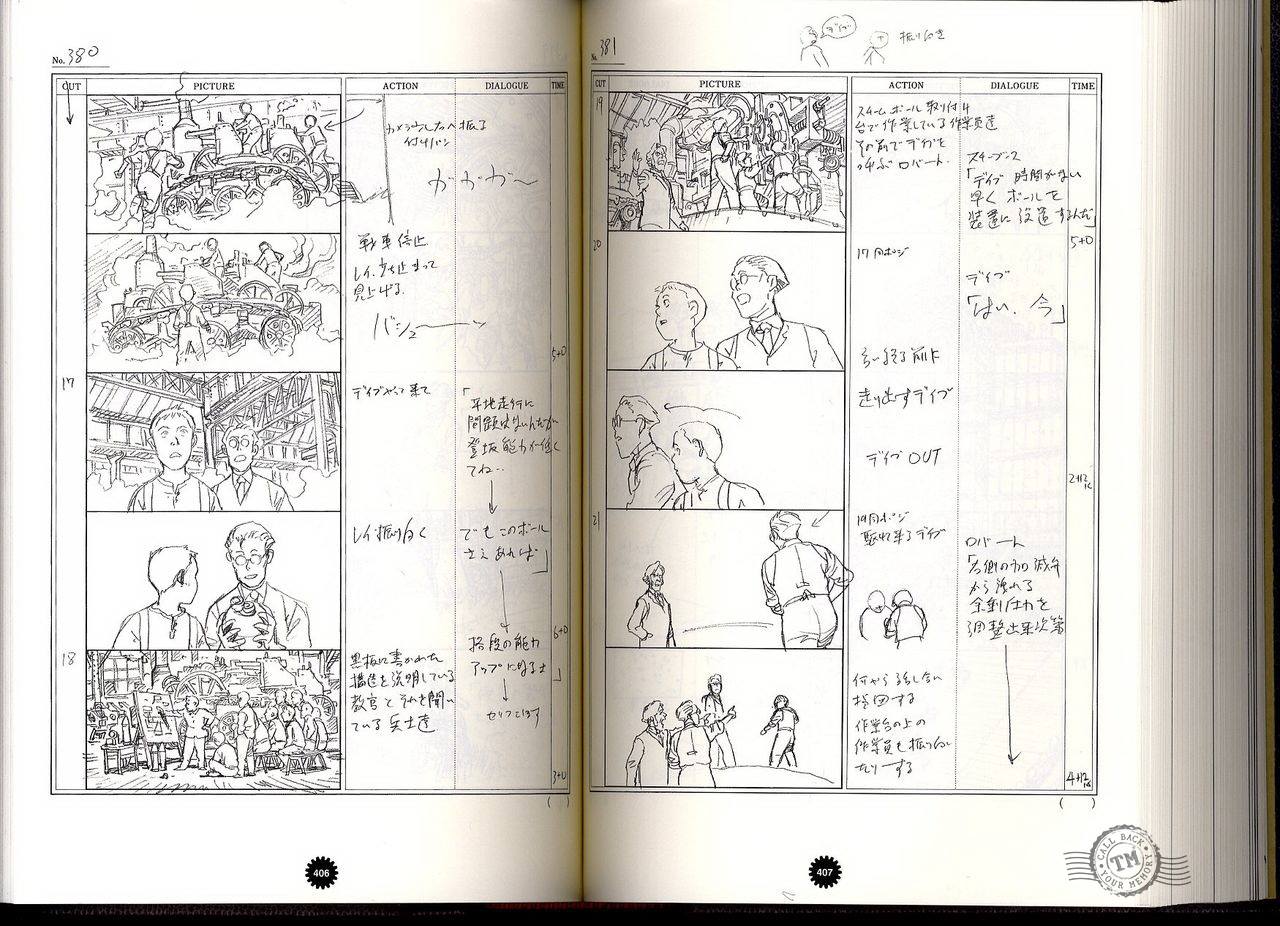 No. 380
CUT PICTURE ACTION DIALOGUE TIME
付けパン
ガガガ〜
戦車停止
レイ、歩や止まって
見上げる
バシュ──ッ
5+0
17
デイブやって来て
「平地走行に
問題はないんだが
登坂能力が低く
てね‥
レイ振り向く
でもこのボール
さえあれば」
6+0
格段の能力
アップになるさ
」
18
黒板に書かれた
構造を説明している
教官とそれを聞い
ている兵士達
セリフこぼす
3+0
( )
406
デイブ
振り向き
No. 381
CUT PICTURE ACTION DIALOGUE TIME
19
スチームボール取り付け
台で作業している作業員達
その前でデイブを
呼ぶロバート
スチーブンス
「デイブ 時間がない
早くボールを
装置に設置するんだ」
5+0
20
17同ポジ
デイブ
「はい、今」
言い終る前に
走り出すデイブ
デイブOUT
2+12
21
19同ポジ
駆れ来るデイブ
ロバート
「右側の加減弁
から流れる
余剰圧力を
調整出来次第
何やら話しない
指図する
作業台の上の
作業員も振り向い
たりする
4+12
( )
407
CALL BACK
TM
YOUR MEMORY